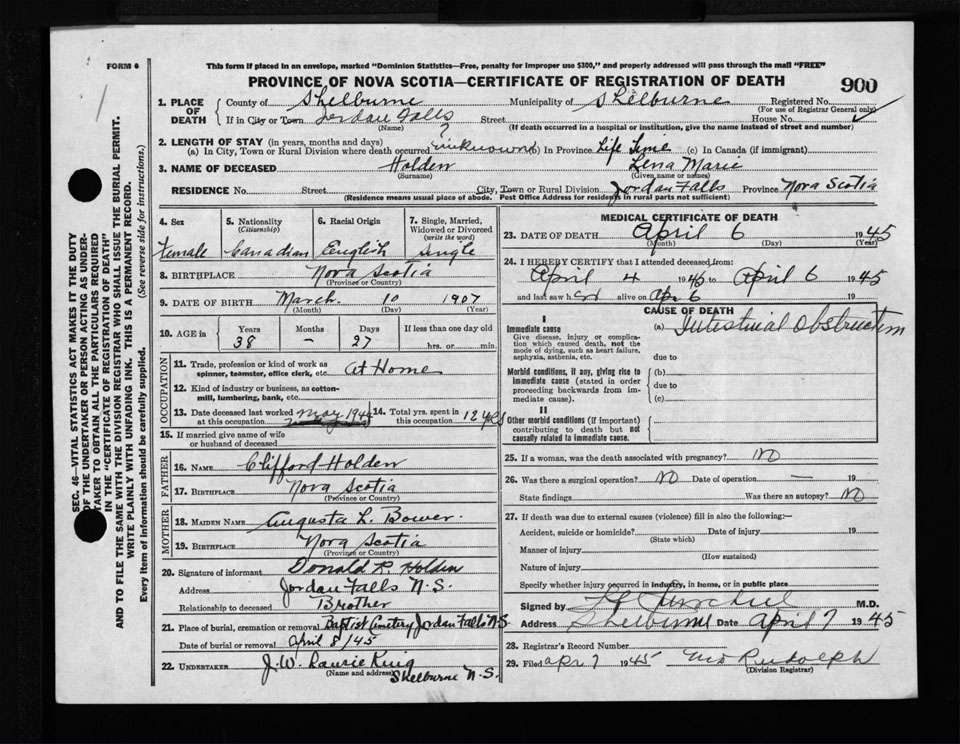 FORM 6
This form if placed in an envelope, marked "Dominion Statistics—Free, penalty for improper use $300," and properly addressed will pass through the mail "FREE"
PROVINCE OF NOVA SCOTIA—CERTIFICATE OF REGISTRATION OF DEATH
900
SEC. 46—VITAL STATISTICS ACT MAKES IT THE DUTY
OF THE UNDERTAKER OR PERSON ACTING AS UNDER-
TAKER TO OBTAIN ALL THE PARTICULARS REQUIRED
IN THE "CERTIFICATE OF REGISTRATION OF DEATH"
AND TO FILE THE SAME WITH THE DIVISION REGISTRAR WHO SHALL ISSUE THE BURIAL PERMIT.
WRITE PLAINLY WITH UNFADING INK. THIS IS A PERMANENT RECORD.
Every item of information should be carefully supplied. (See reverse side for instructions.)
1. PLACE OF DEATH County of Shelburne Municipality of Shelburne Registered No.
(For use of Registrar General only)
If in City or Town Jordan Falls Street House No.
(Name) (If death occurred in a hospital or institution, give the name instead of street and number)
2. LENGTH OF STAY (in years, months and days)
(a) In City, Town or Rural Division where death occurred ? unknown (b) In Province Life Time (c) In Canada (if immigrant)
3. NAME OF DECEASED Holden Lena Marie
(Surname) (Given name or names)
RESIDENCE No. Street City, Town or Rural Division Jordan Falls Province Nova Scotia
(Residence means usual place of abode. Post Office Address for residents in rural parts not sufficient)
4. Sex Female
5. Nationality (Citizenship) Canadian
6. Racial Origin English
7. Single, Married, Widowed or Divorced (write the word) Single
8. BIRTHPLACE Nova Scotia
(Province or Country)
9. DATE OF BIRTH March 10 1907
(Month) (Day) (Year)
10. AGE in Years Months Days If less than one day old
38 – 27 hrs. or min.
OCCUPATION
11. Trade, profession or kind of work as spinner, teamster, office clerk, etc. At Home
12. Kind of industry or business, as cotton-mill, lumbering, bank, etc.
13. Date deceased last worked at this occupation May 1944
14. Total yrs. spent in this occupation 12 yrs
15. If married give name of wife or husband of deceased
FATHER
16. NAME Clifford Holden
17. BIRTHPLACE Nova Scotia
(Province or Country)
MOTHER
18. MAIDEN NAME Augusta L. Bower.
19. BIRTHPLACE Nova Scotia
(Province or Country)
20. Signature of informant Donald R Holden
Address Jordan Falls N.S.
Relationship to deceased Brother
21. Place of burial, cremation or removal Baptist Cemetery Jordan Falls N.S.
Date of burial or removal April 8/45
22. UNDERTAKER J.W. Laurie King
(Name and address) Shelburne N.S.
MEDICAL CERTIFICATE OF DEATH
23. DATE OF DEATH April 6 1945
(Month) (Day) (Year)
24. I HEREBY CERTIFY that I attended deceased from:
April 4 1945 to April 6 1945
and last saw her alive on Apr 6 19
CAUSE OF DEATH
I
Immediate cause (a) Intestinal Obstruction
Give disease, injury or complica-
tion which caused death, not the
mode of dying, such as heart failure,
asphyxia, asthenia, etc. due to
Morbid conditions, if any, giving rise to (b)
immediate cause (stated in order due to
proceeding backwards from im-
mediate cause). (c)
II
Other morbid conditions (if important)
contributing to death but not
causally related to immediate cause.
25. If a woman, was the death associated with pregnancy? No
26. Was there a surgical operation? No Date of operation — 19
State findings Was there an autopsy? No
27. If death was due to external causes (violence) fill in also the following:—
Accident, suicide or homicide? Date of injury 19
(State which)
Manner of injury
(How sustained)
Nature of injury
Specify whether injury occurred in industry, in home, or in public place
Signed by M.D.
Address Shelburne Date April 7 1945
28. Registrar's Record Number
29. Filed Apr 7 1945 Rudolph
(Division Registrar)